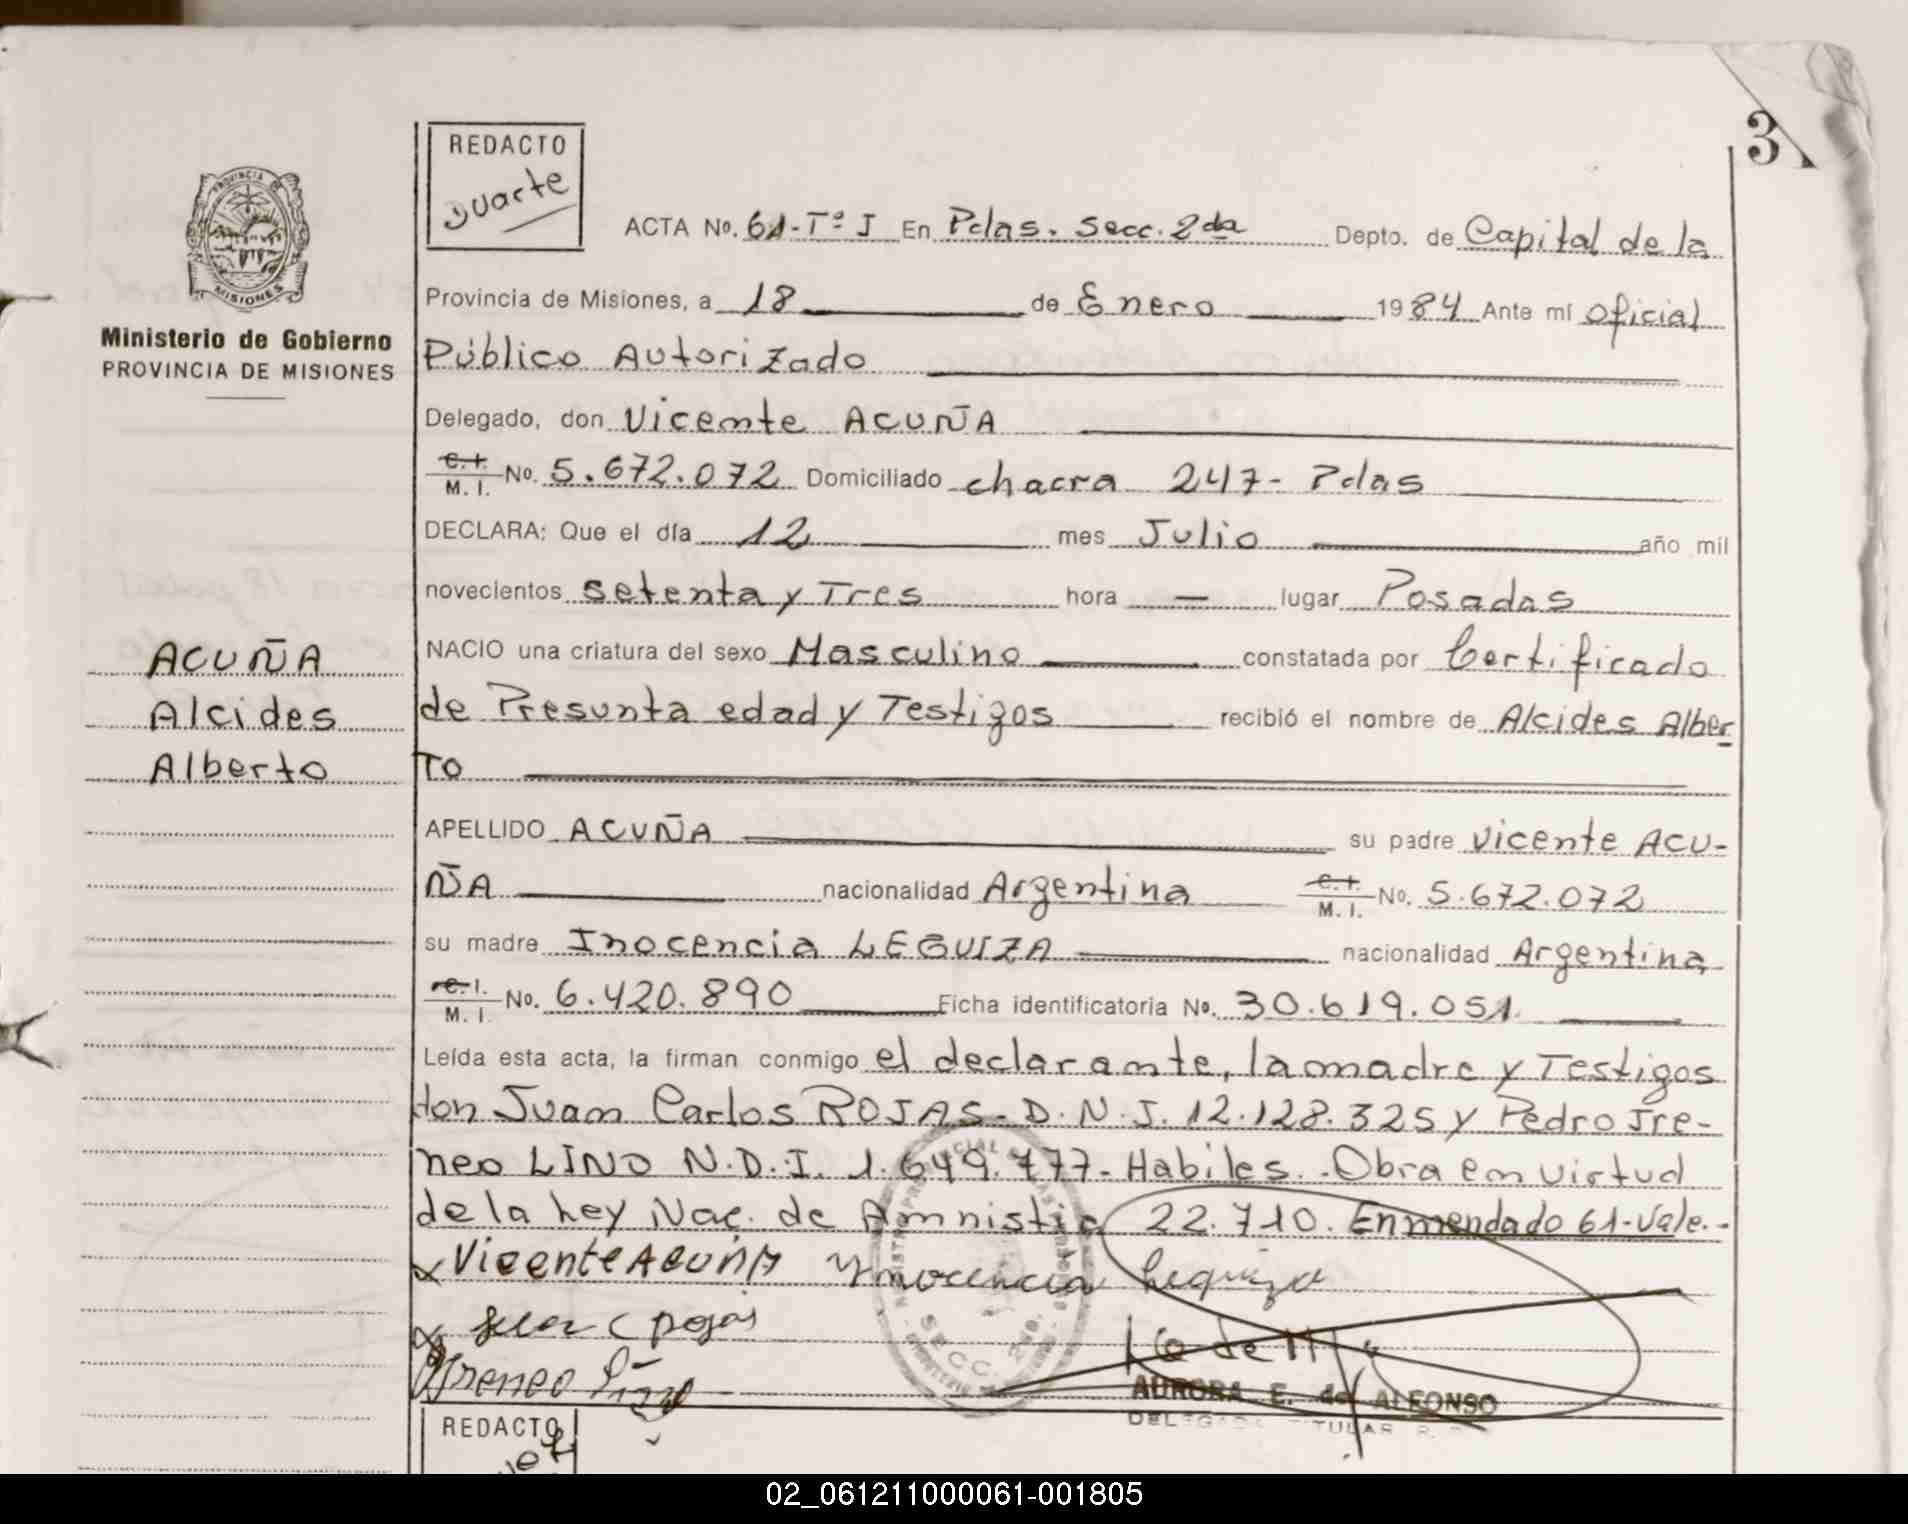 3
REDACTO
Duarte
PROVINCIA DE
MISIONES
Ministerio de Gobierno
PROVINCIA DE MISIONES
ACTA No. 61-Tº I En Pdas. Secc. 2da Depto. de Capital de la
Provincia de Misiones, a 18 de Enero 1984 Ante mí Oficial
Público Autorizado
Delegado, don Vicente ACUÑA
C.I. M. I. No. 5.672.072 Domiciliado chacra 247- Pdas
DECLARA: Que el día 12 mes Julio año mil
novecientos setenta y Tres hora — lugar Posadas
NACIO una criatura del sexo Masculino constatada por Certificado
de Presunta edad y Testigos recibió el nombre de Alcides Alber
TO
ACUÑA
Alcides
Alberto
APELLIDO ACUÑA su padre Vicente ACU-
ÑA nacionalidad Argentina C.I. M. I. No. 5.672.072
su madre Inocencia LEGUIZA nacionalidad Argentina
C.I. M. I. No. 6.420.890 Ficha identificatoria No. 30.619.051
Leída esta acta, la firman conmigo el declarante, la madre y Testigos
don Juan Carlos ROJAS- D.N.I. 12.128.325 y Pedro Ire-
neo LINO N.D.I. 1.649.777- Habiles. Obra en virtud
de la Ley Nac. de Amnistia 22.710. Enmendado 61-Vale.-
x Vicente ACUÑA Ynocencia Leguiza
SECC. 2da.
AURORA E. de ALFONSO
DELEGADA TITULAR
REDACTO
02_061211000061-001805